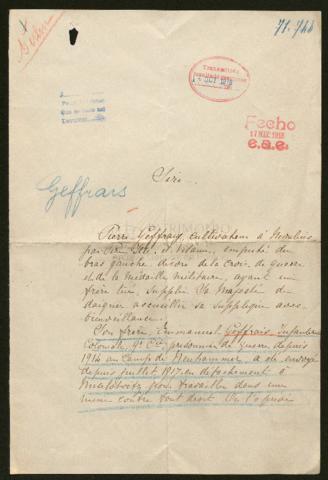 71.744
Transmitido
OCT 1918
Fecho
17 DIC 1918
e.a.e.
Sire.
Geffrais
Pierre Geffrais, cultivateur à Moulins
par Ille et Vilaine, amputé du
bras gauche, décoré de la Croix de guerre
et de la Médaille militaire, ayant un
frère tué, supplie Sa Majesté de
daigner accueillir sa supplique avec
bienveillance.
Son frère, Emmanuel Geffrais Infanterie
Coloniale, 9e Cie, prisonnier de guerre depuis
1914 au Camp de Neuhammer, a été envoyé
depuis juillet 1917 en détachement à
pour travailler dans une
mine contre tout droit. On l'a